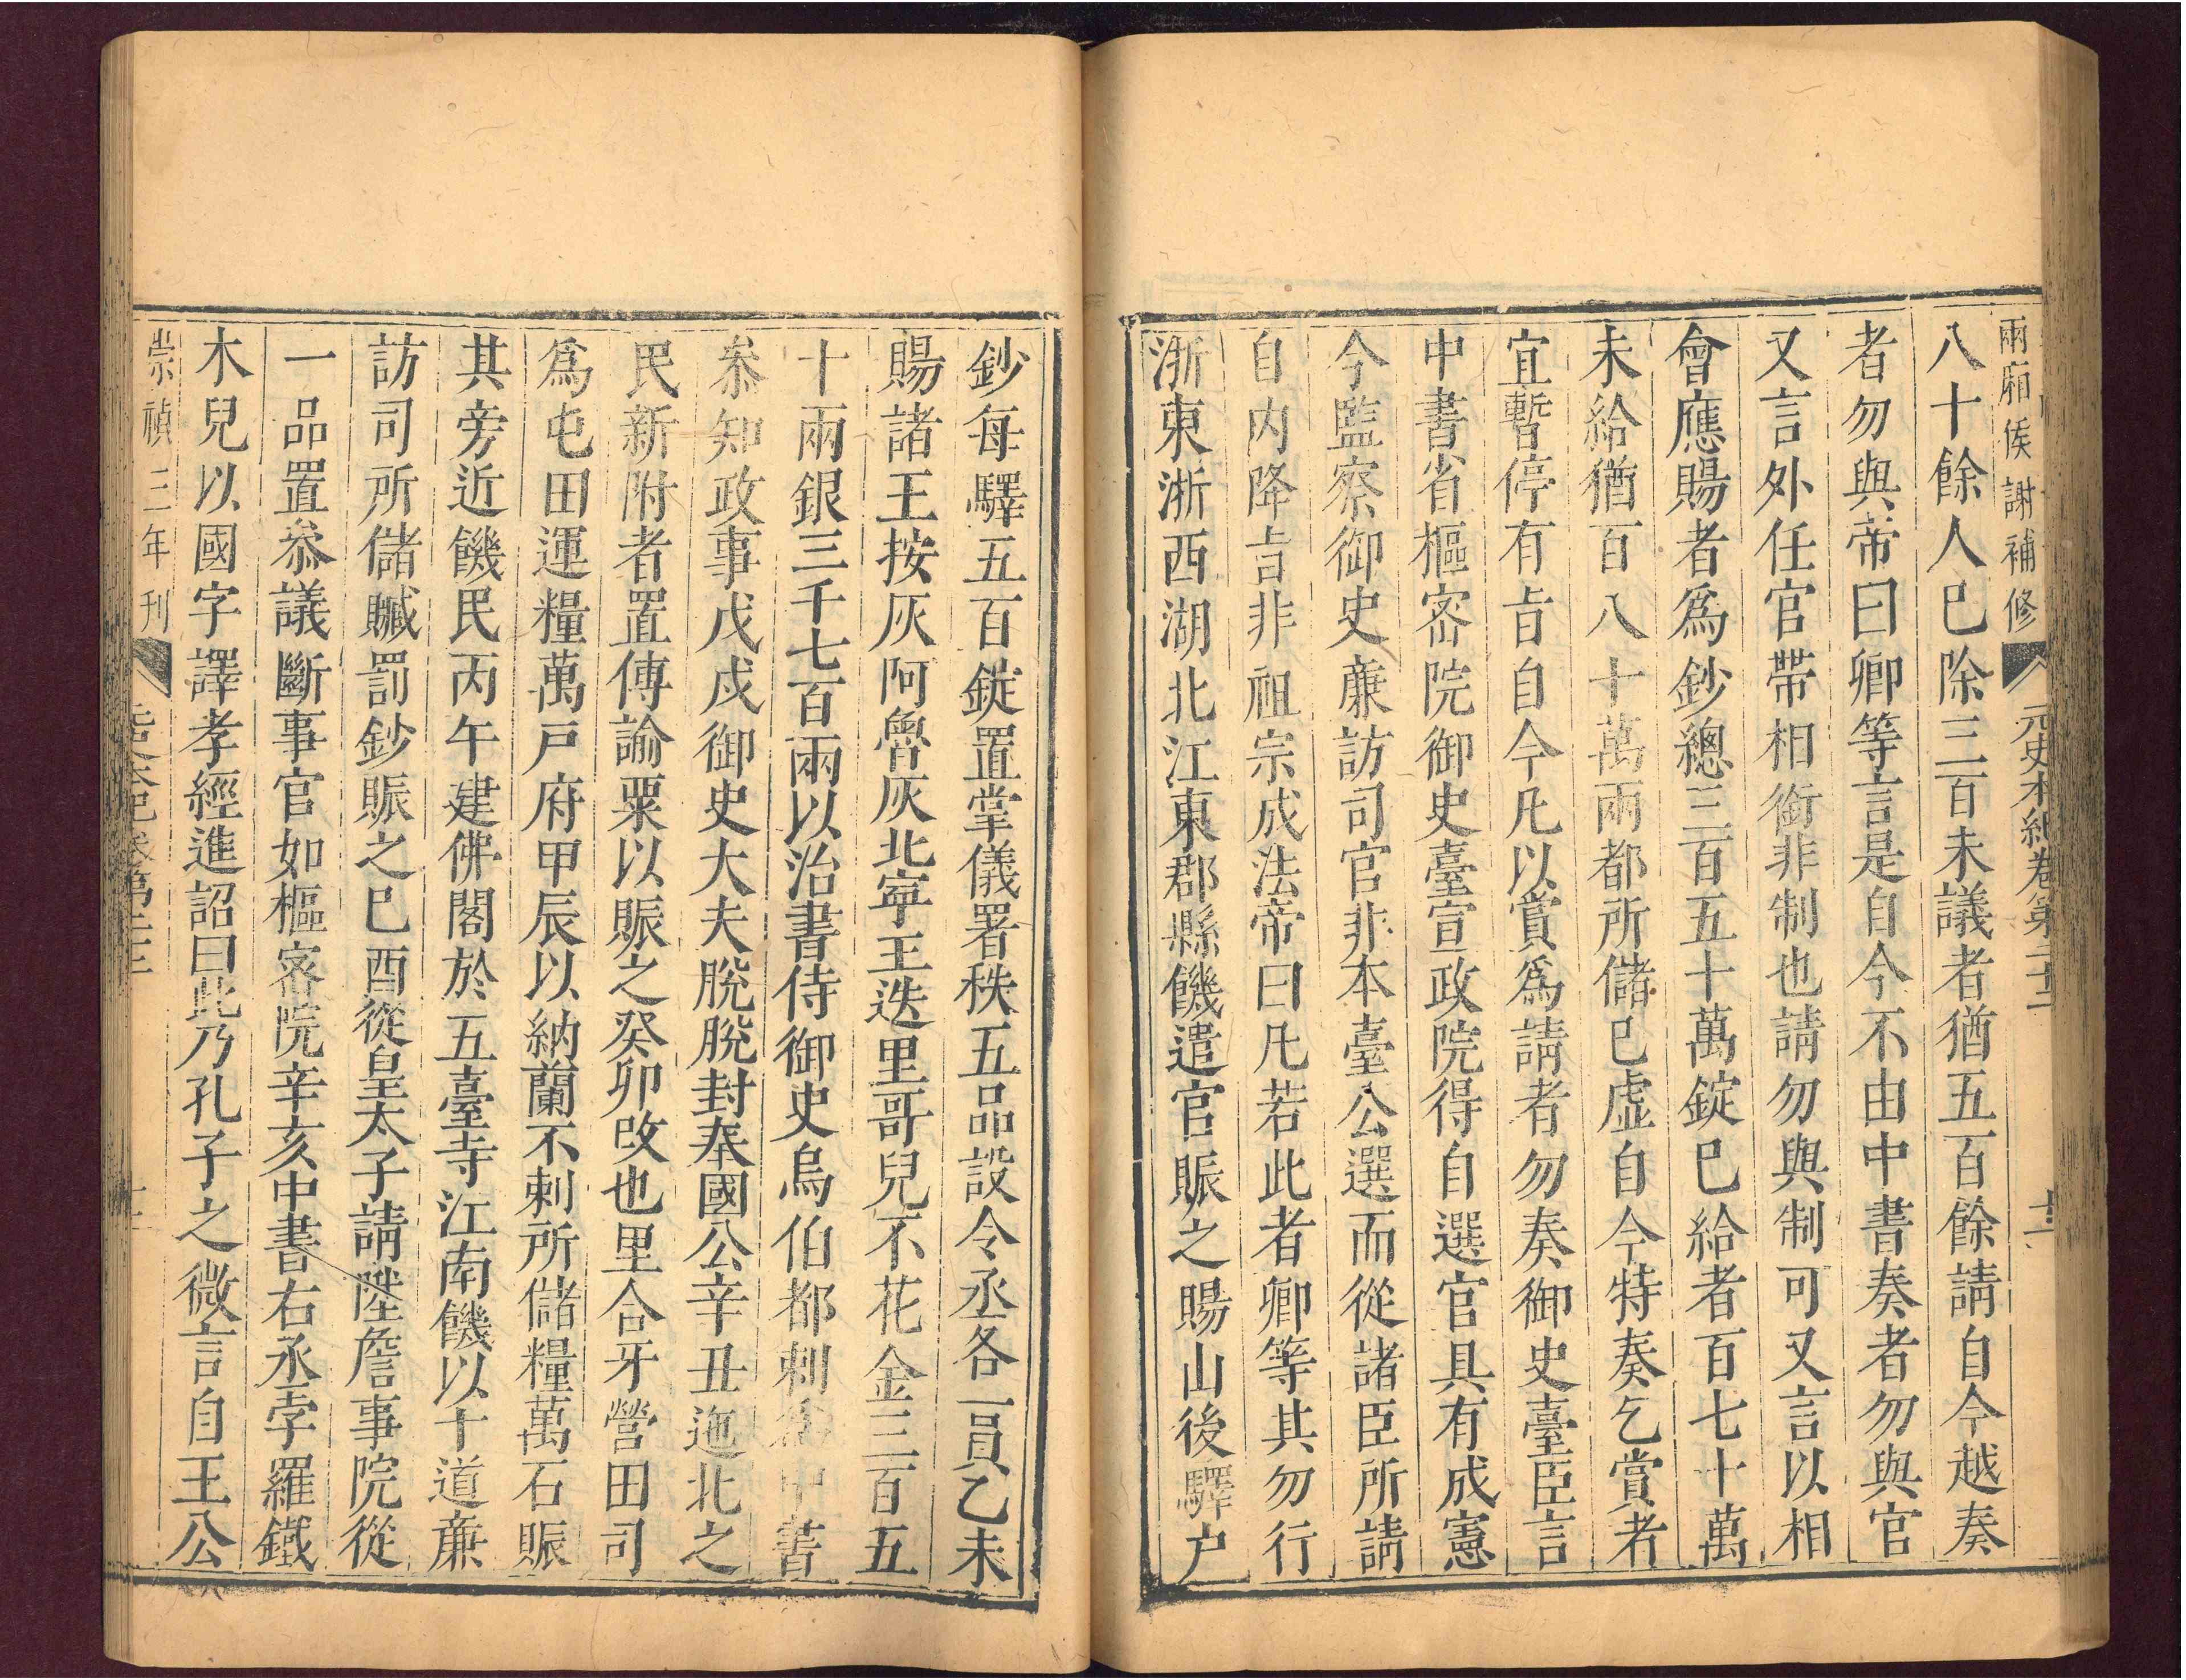 兩廂俟謝補修
元史本紀卷第二十二
八十餘人巳除三百未議者猶五百餘請自今越奏
者勿與帝曰卿等言是自今不由中書奏者勿與官
又言外任官帶相銜非制也請勿與制可又言以相
會應賜者爲鈔總三百五十萬錠巳給者百七十萬
未給猶百八十萬兩都所儲巳虛自今特奏乞賞者
宜暫停有旨自今凡以賞爲請者勿奏御史臺臣言
中書省樞密院御史臺宣政院得自選官具有成憲
今監察御史廉訪司官非本臺公選而從諸臣所請
自内降旨非祖宗成法帝曰凡若此者卿等其勿行
浙東浙西湖北江東郡縣饑遣官賑之賜山後驛户
鈔每驛五百錠置掌儀署秩五品設令丞各一員乙未
賜諸王按灰阿魯灰北寧王迭里哥兒不花金三百五
十兩銀三千七百兩以治書侍御史烏伯都剌爲中書
叅知政事戊戌御史大夫脫脫封奉國公辛丑迤北之
民新附者置傳諭粟以賑之癸卯改也里合牙營田司
爲屯田運糧萬戸府甲辰以納蘭不剌所儲糧萬石賑
其旁近饑民丙午建佛閣於五臺寺江南饑以十道廉
訪司所儲贓罰鈔賑之巳酉從皇太子請陞詹事院從
一品置叅議斷事官如樞密院辛亥中書右丞孛羅鐵
木兒以國字譯孝經進詔曰此乃孔子之微言自王公
崇禎三年刊